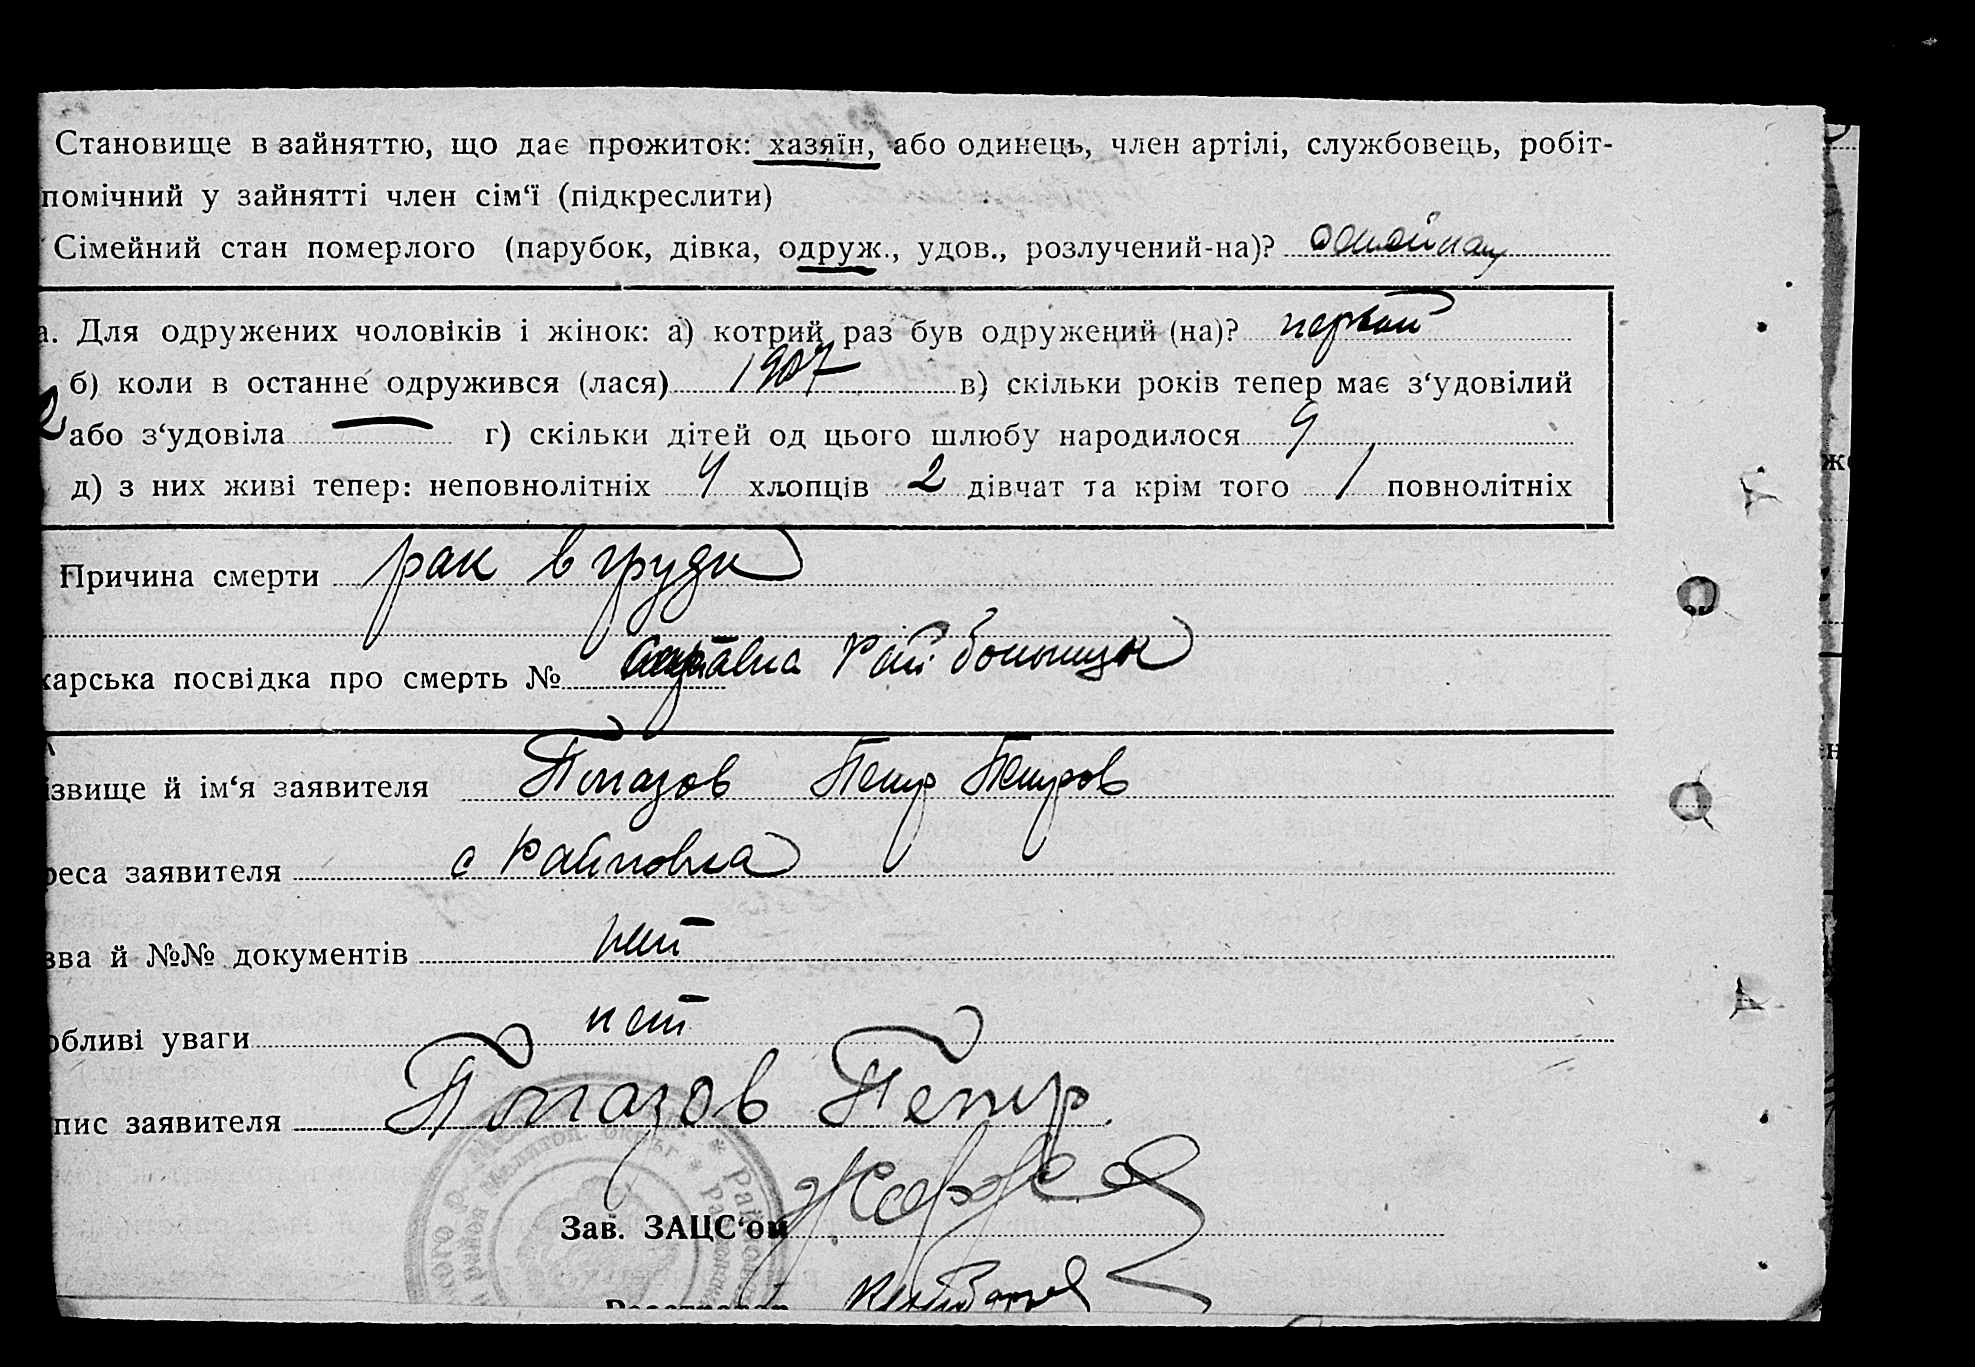 Становище в зайняттю, що дає прожиток: хазяїн, або одинець, член артілі, службовець, робіт-
помічний у зайнятті член сім‘ї (підкреслити)
Сімейний стан померлого (парубок, дівка, одруж., удов., розлучений-на)?
а. Для одружених чоловіків і жінок: а) котрий раз був одружений (на)? первый
б) коли в останнє одружився (лася) 1907 в) скільки років тепер має з‘удовілий
або з‘удовіла — г) скільки дітей од цього шлюбу народилося 9
д) з них живі тепер: неповнолітніх 4 хлопців 2 дівчат та крім того 1 повнолітніх
Причина смерти рак в груди
карська посвідка про смерть № Рай больницы
ізвище й ім‘я заявителя Топазов Петр Петров
реса заявителя с Райновка
зва й №№ документів нет
обливі уваги нет
пис заявителя Топазов Петр
Зав. ЗАЦС‘ом